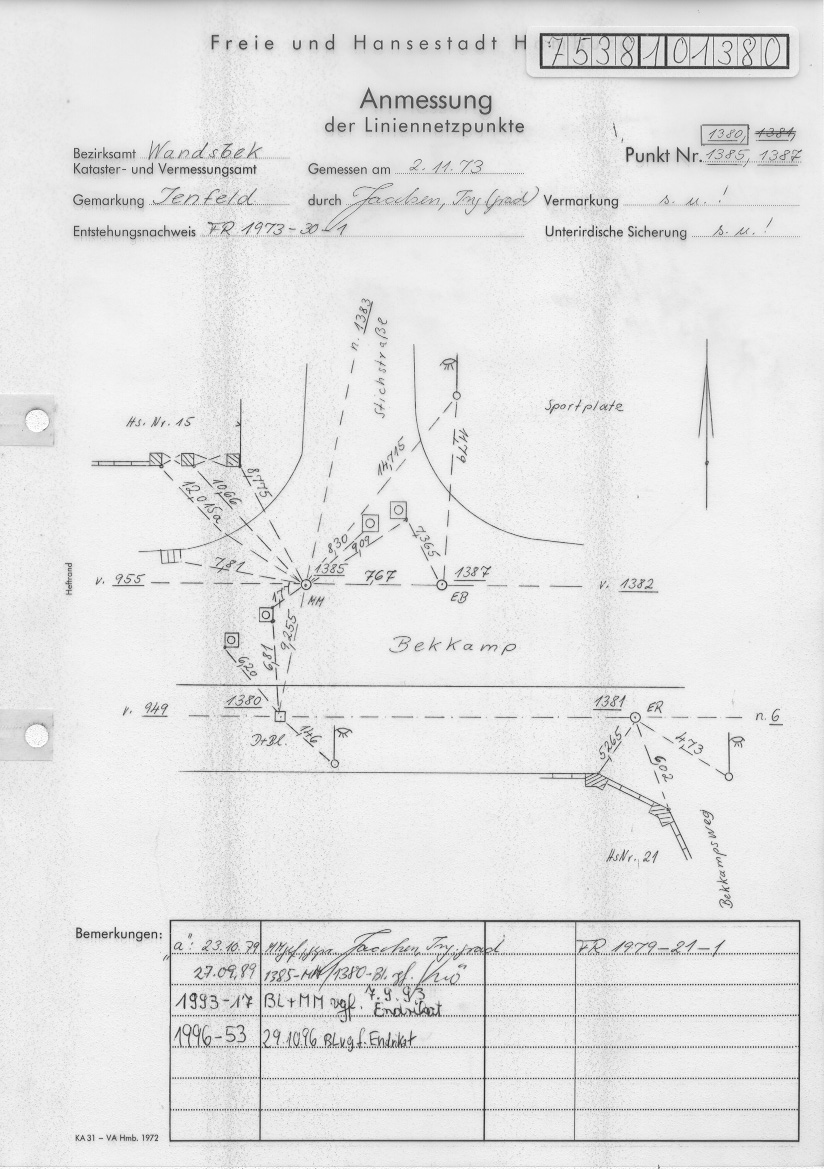 Freie und Hansestadt H
7538101380
Anmessung
der Liniennetzpunkte
1380, 1381,
Punkt Nr. 1385, 1387
Bezirksamt Wandsbek
Kataster- und Vermessungsamt
Gemessen am 2.11.73
Gemarkung Jenfeld
durch Jacobsen, Ing (grad)
Vermarkung s. u. !
Entstehungsnachweis FR 1973-30-1
Unterirdische Sicherung s. u. !
n. 1383
Stichstraße
Sportplatz
Hs. Nr. 15
14,715
11,79
8,775
10,66
12,015a
8,30
9,09
7,365
7,81
1385
767
1387
v. 955
v. 1382
MM
EB
1,77
9,255
6,81
6,20
Bekkamp
1380
1381
ER
v. 949
n. 6
D+Bl.
146
5265
602
473
HsNr. 21
Bekkampsweg
Heftrand
Bemerkungen:
"a": 23.10.79 Jacobsen, Ing. grad FR 1979-21-1
27.09.89 1385-MM/1380-Bl. gf.
1993-17 BL+MM vgf. 7.9.93 Endrikat
1996-53 29.10.96 BL vgf. Endrikat
KA 31 – VA Hmb. 1972